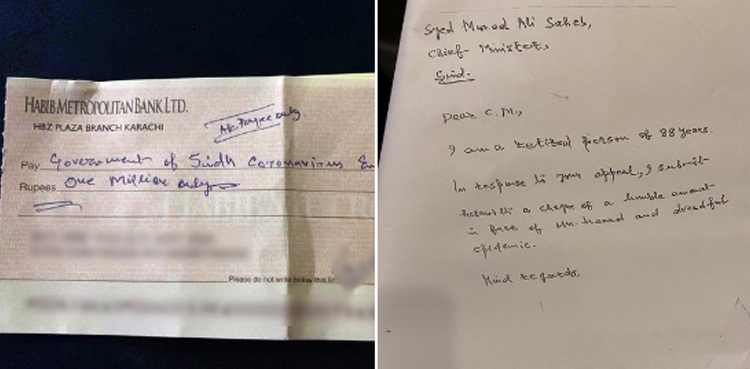 HABIB METROPOLITAN BANK LTD.
HBZ PLAZA BRANCH KARACHI
A/c Payee only
Pay Government of Sindh Coronavirus
Rupees One Million only
Please do not write below this
Syed Murad Ali Saheb,
Chief Minister,
Sind.
Dear C.M.,
I am a retired person of 88 years.
In response to your appeal, I submit
herewith a cheque of a humble amount
in face of un-heard and dreadful
epidemic.
Kind regards,